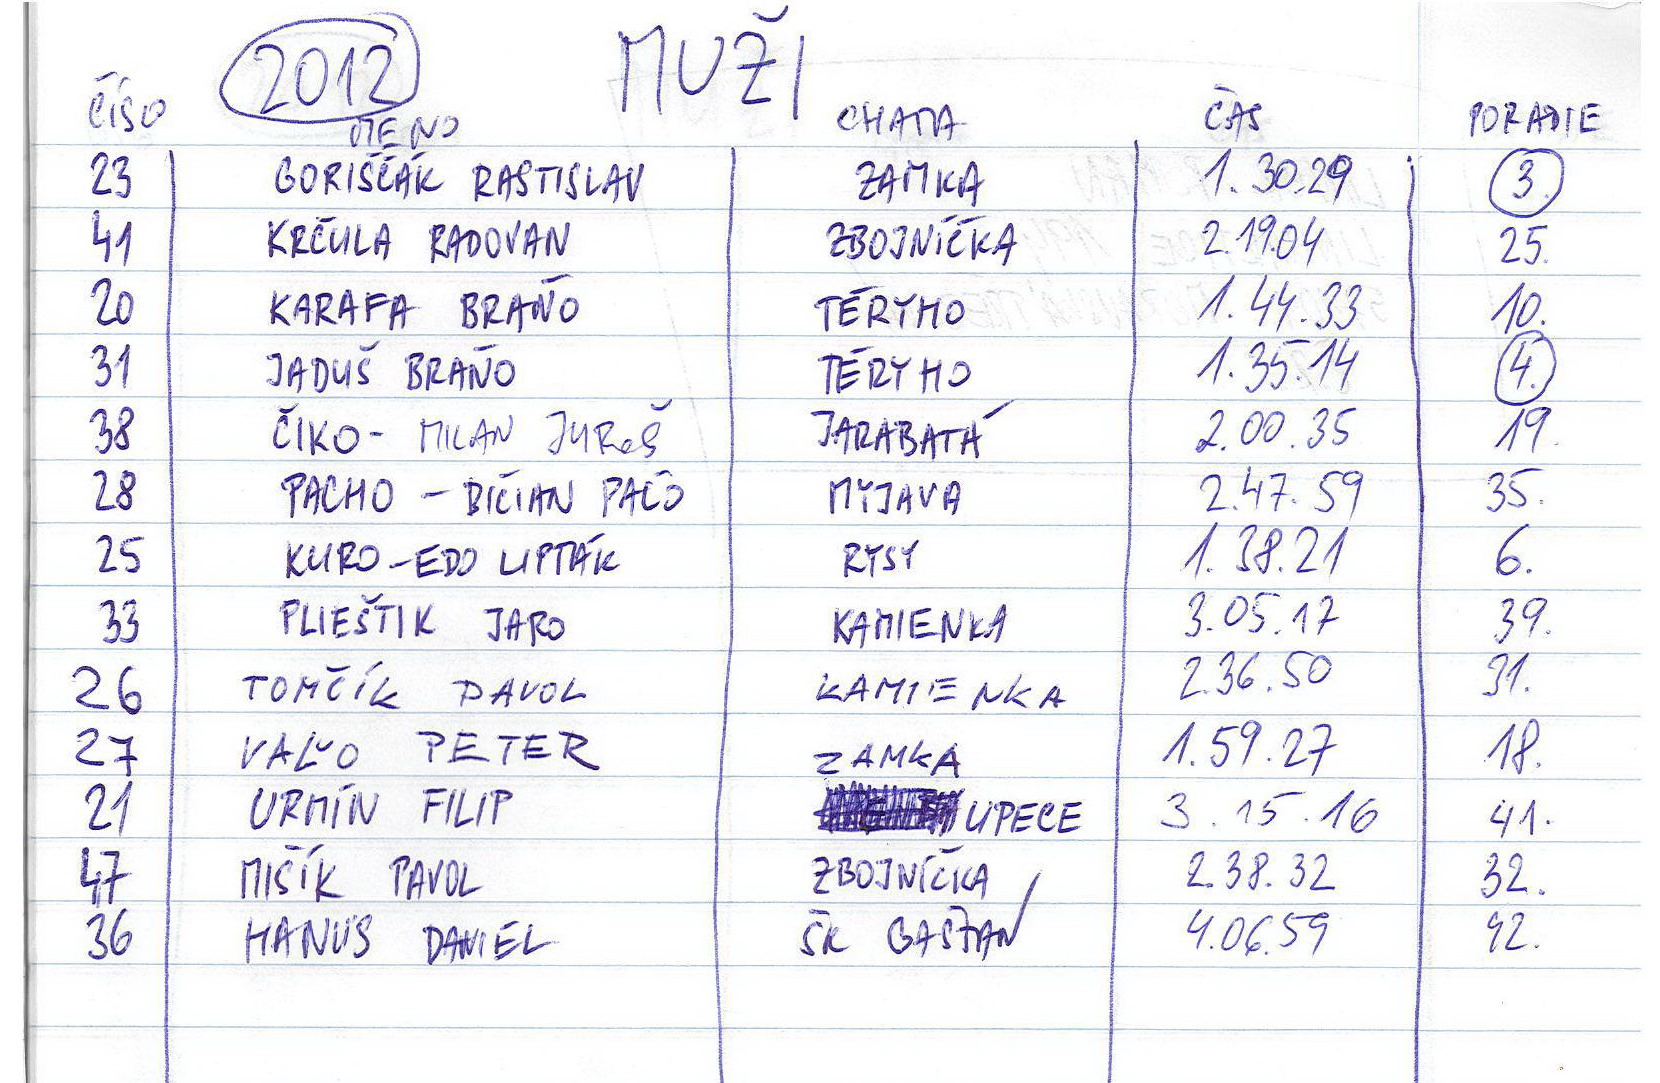 2012 MUŽI
ČÍSO MENO CHATA ČAS PORADIE
23 GORIŠČÁK RASTISLAV ZAMKA 1.30.29 3.
41 KRČULA RADOVAN ZBOJNÍČKA 2.19.04 25.
20 KARAFA BRAŇO TÉRYHO 1.44.33 10.
31 JADUŠ BRAŇO TÉRYHO 1.35.14 4.
38 ČIKO - MILAN JUROŠ JARABATÁ 2.00.35 19.
28 PACHO - BIČIAN PAĽO MYJAVA 2.47.59 35.
25 KURO - EDO LIPTÁK RYSY 1.38.21 6.
33 PLIEŠTIK JARO KAMIENKA 3.05.17 39.
26 TOMČÍK PAVOL KAMIENKA 2.36.50 31.
27 VAĽO PETER ZAMKA 1.59.27 18.
21 URMÍN FILIP UPECE 3.15.16 41.
47 MIŠÍK PAVOL ZBOJNÍČKA 2.38.32 32.
36 HANUS DANIEL ŠK GAŠTAN 4.06.59 42.